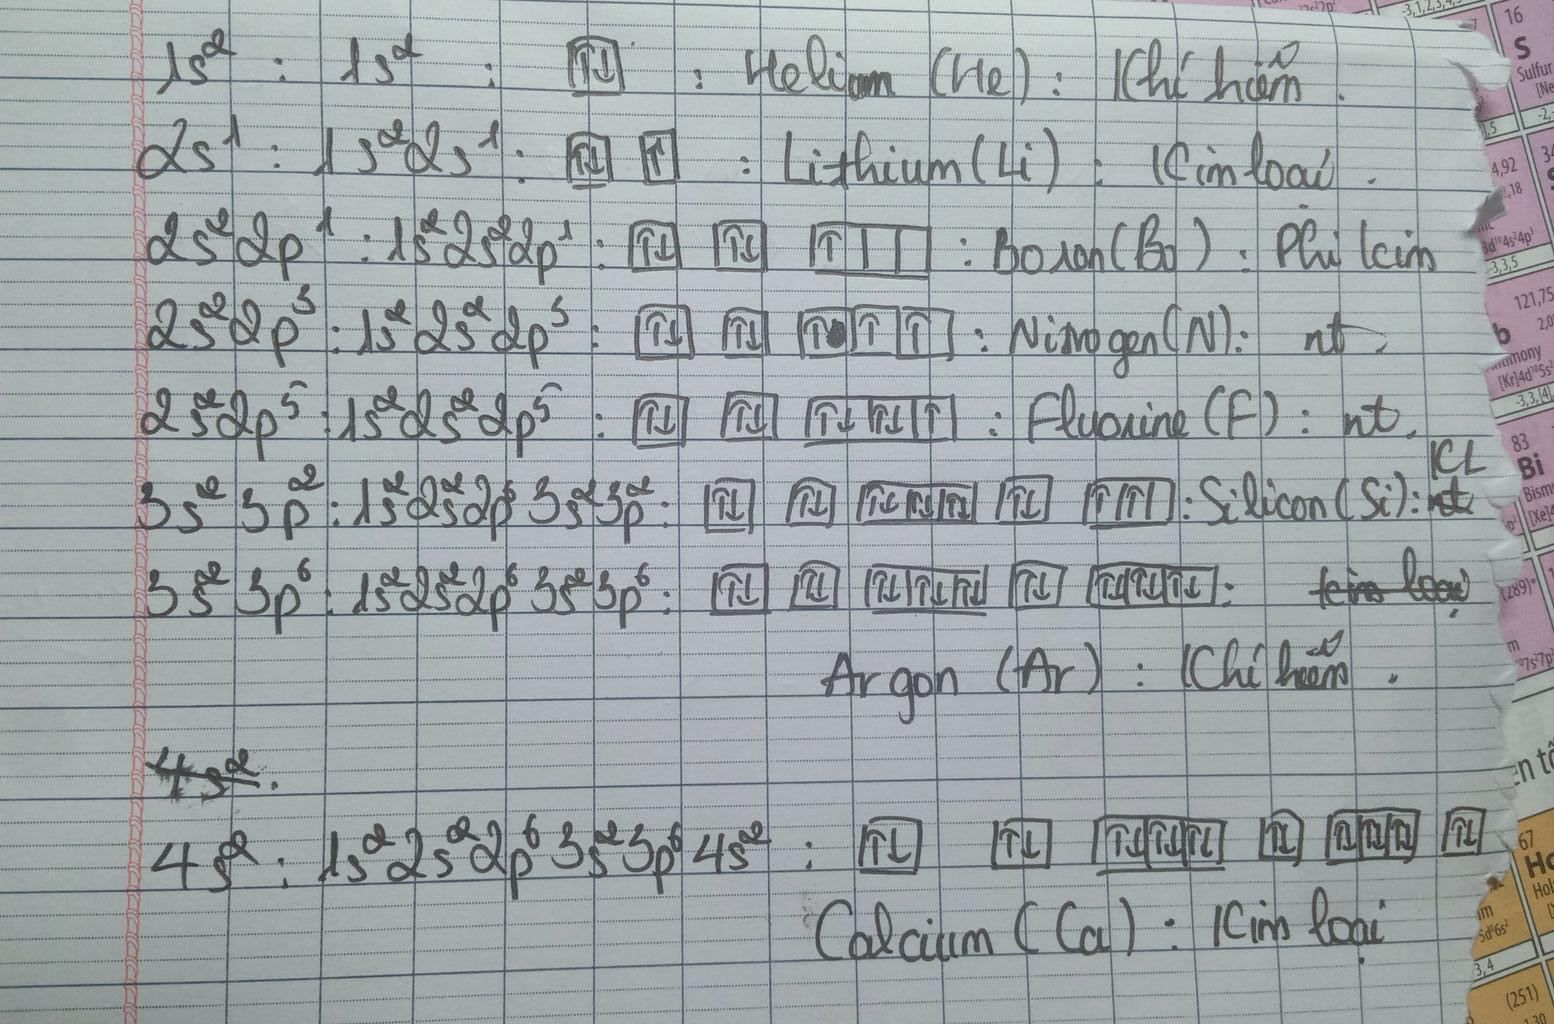 1s² : 1s² : ↑↓ : Helium (He) : Khí hiếm .
2s¹ : 1s²2s¹ : ↑↓ ↑ : Lithium (Li) : Kim loại .
2s²2p¹ : 1s²2s²2p¹ : ↑↓ ↑↓ ↑ : Boron (Bo) : Phi kim
2s²2p³ : 1s²2s²2p³ : ↑↓ ↑↓ ↑ ↑ ↑ : Nitrogen (N) : nt .
2s²2p⁵ : 1s²2s²2p⁵ : ↑↓ ↑↓ ↑↓ ↑↓ ↑ : Fluorine (F) : nt .
3s²3p² : 1s²2s²2p⁶3s²3p² : ↑↓ ↑↓ ↑↓ ↑↓ ↑↓ ↑↓ ↑ ↑ : Silicon (Si) : nt KL
3s²3p⁶ : 1s²2s²2p⁶3s²3p⁶ : ↑↓ ↑↓ ↑↓ ↑↓ ↑↓ ↑↓ ↑↓ ↑↓ ↑↓ : kim loại
Argon (Ar) : Khí hiếm .
4s² .
4s² : 1s²2s²2p⁶3s²3p⁶4s² : ↑↓ ↑↓ ↑↓ ↑↓ ↑↓ ↑↓ ↑↓ ↑↓ ↑↓ ↑↓
Calcium (Ca) : Kim loại
16
S
Sulfur
[Ne
4,92
121,75
[Kr]4d¹⁰5s²
83
Bi
Bism
[Xe]4
(289)
67
Ho
Hol
3,4
(251)